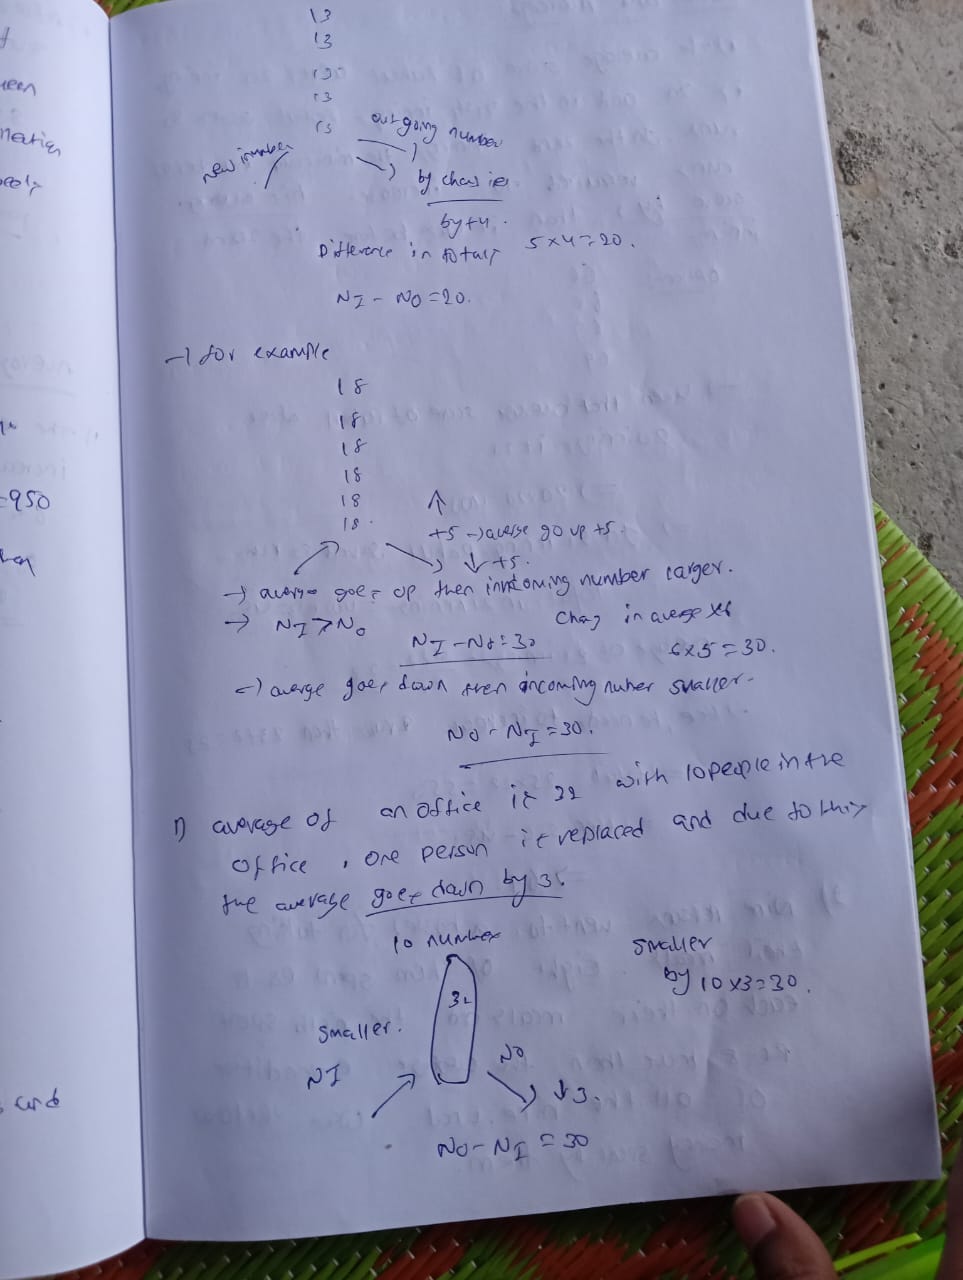 13
13
13
13
13
outgoing number
new number
by
by +4.
Difference in totals 5x4=20.
NI - NO = 20.
→ for example
18
18
18
18
18
18.
+5 → averge go up +5
↓ +5.
→ averge goes up then incoming number larger.
→ NI > NO
NI - NO = 30 in averge x6
6x5=30.
→ averge goes down then incoming nuber smaller.
NO - NI = 30.
1) average of an office is 32 with 10 people in the
office, one person is replaced and due to this
the average goes down by 3.
10 number
32
smaller
by 10x3=30.
smaller.
NI
NO
↓3.
NO - NI = 30
een
=950
and